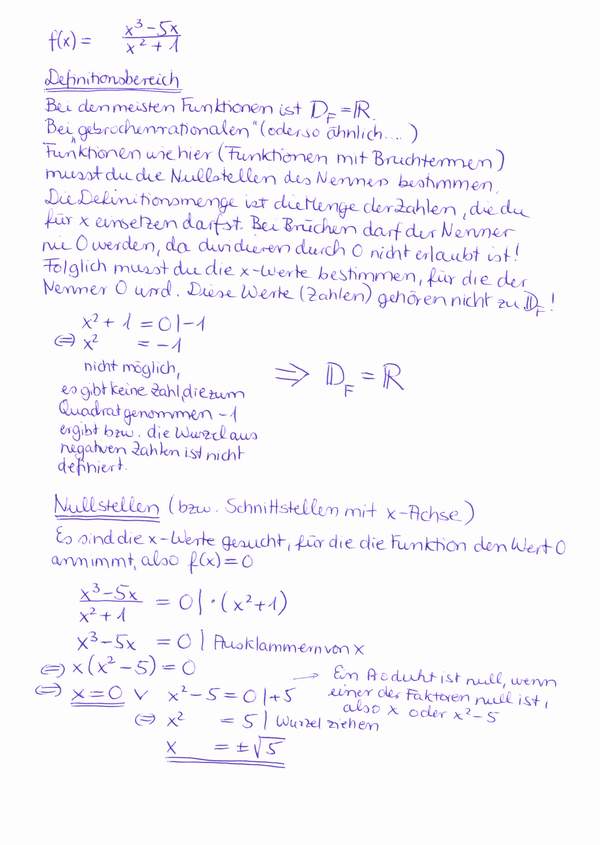 f(x) = (x³ - 5x)/(x² + 1)
Definitionsbereich
Bei den meisten Funktionen ist D_F = ℝ.
Bei „gebrochenrationalen" (oder so ähnlich....)
Funktionen wie hier (Funktionen mit Bruchtermen)
musst du die Nullstellen des Nenners bestimmen.
Die Definitionsmenge ist die Menge der Zahlen, die du
für x einsetzen darfst. Bei Brüchen darf der Nenner
nie 0 werden, da dividieren durch 0 nicht erlaubt ist!
Folglich musst du die x-Werte bestimmen, für die der
Nenner 0 wird. Diese Werte (Zahlen) gehören nicht zu D_F!
x² + 1 = 0 | -1
⇔ x² = -1
nicht möglich,
es gibt keine Zahl, die zum
Quadrat genommen -1
ergibt bzw. die Wurzel aus
negativen Zahlen ist nicht
definiert.
⇒ D_F = ℝ
Nullstellen (bzw. Schnittstellen mit x-Achse)
Es sind die x-Werte gesucht, für die die Funktion den Wert 0
annimmt, also f(x) = 0
(x³ - 5x)/(x² + 1) = 0 | · (x² + 1)
x³ - 5x = 0 | Ausklammern von x
⇔ x(x² - 5) = 0
→ Ein Produkt ist null, wenn
einer der Faktoren null ist,
also x oder x² - 5
⇔ x = 0 ∨ x² - 5 = 0 | +5
⇔ x² = 5 | Wurzel ziehen
x = ±√5